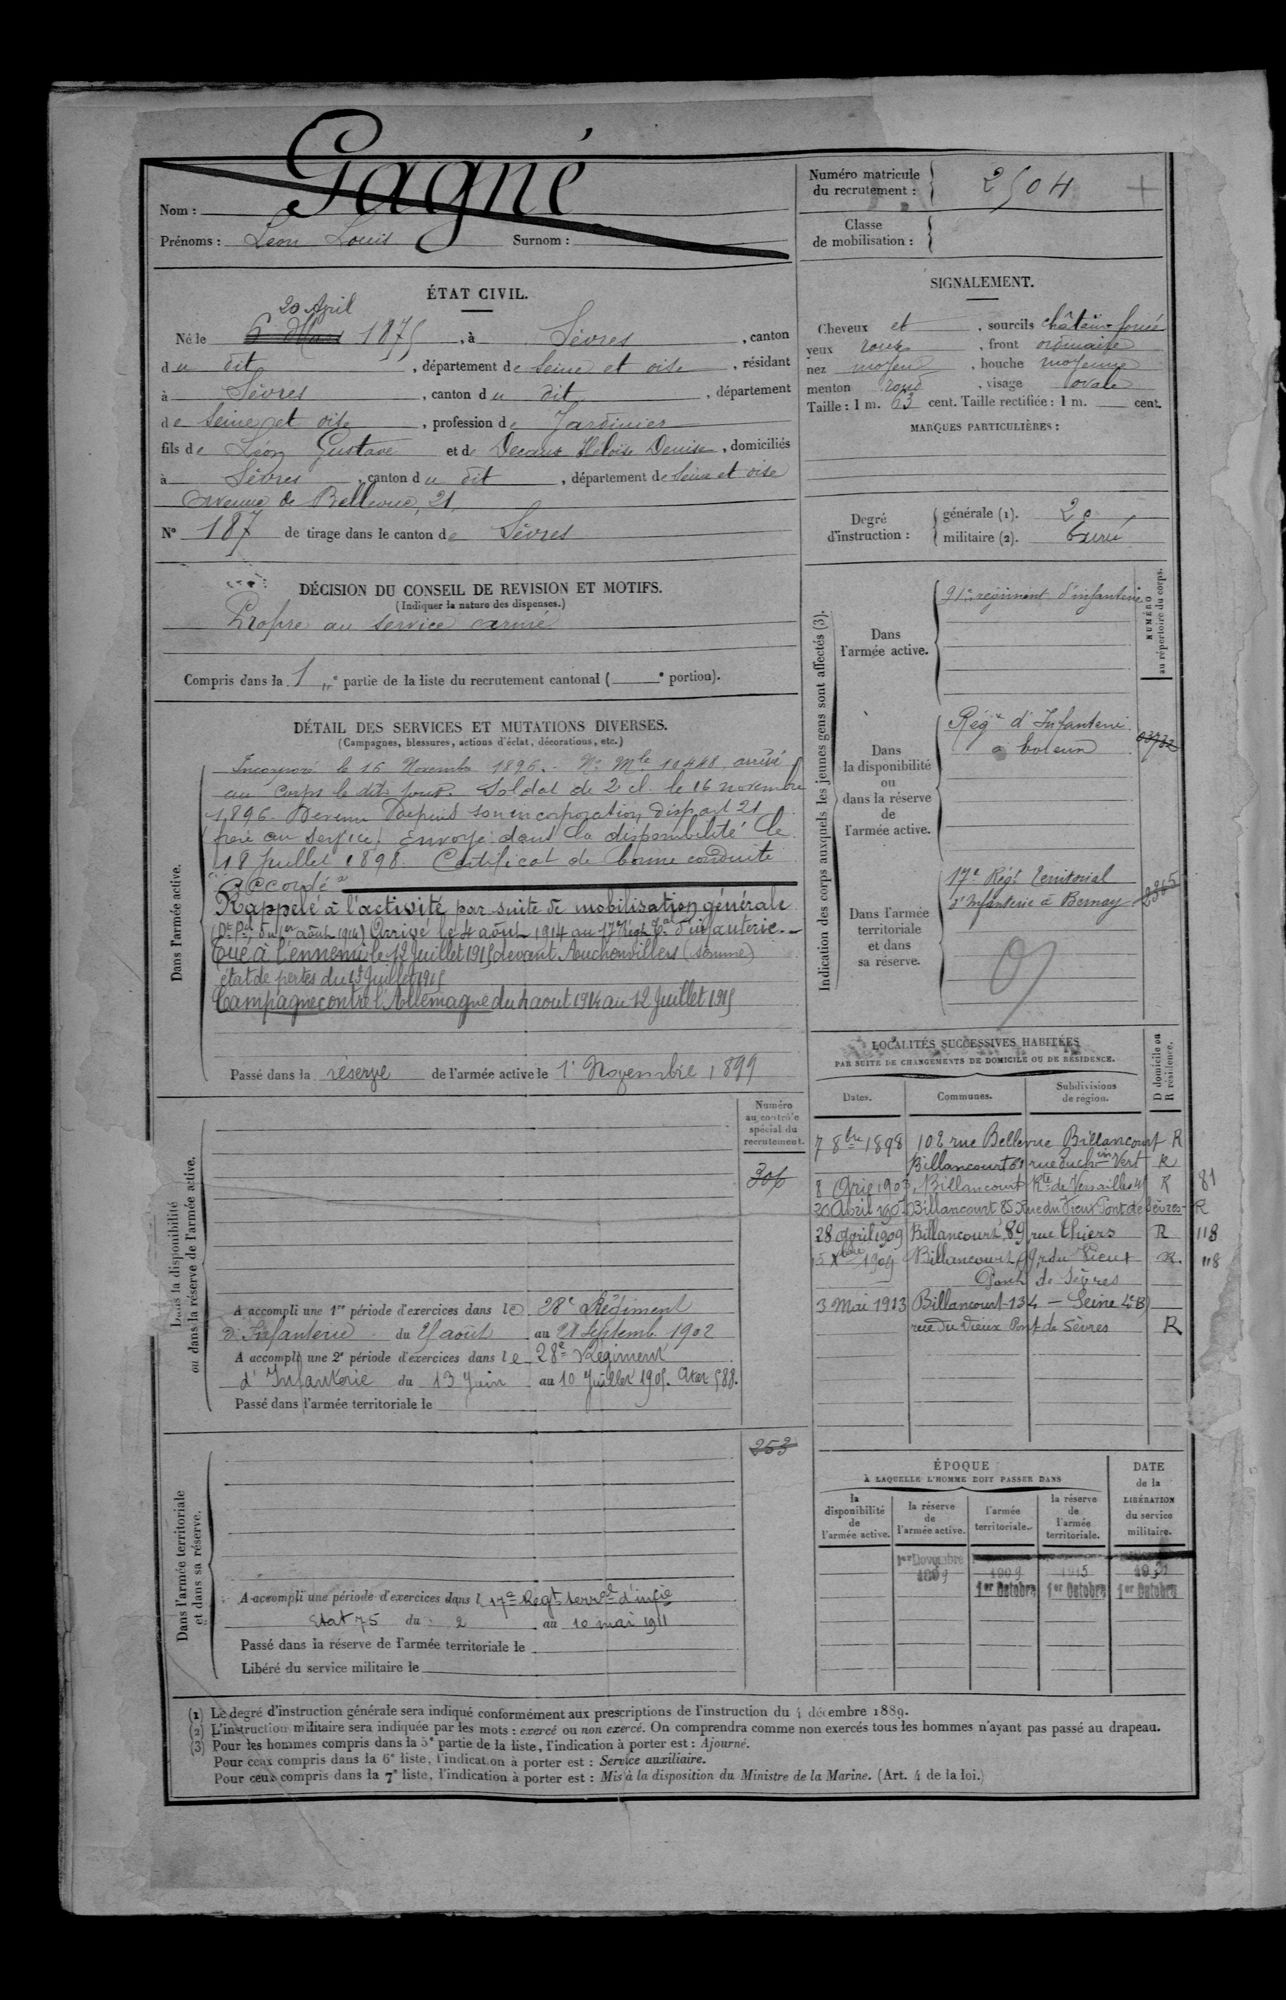 Gagné
Nom :
Prénoms : Léon Louis Surnom :
Numéro matricule du recrutement : 2504
Classe de mobilisation :
ÉTAT CIVIL.
20 Avril
Né le 6 Mars 1875, à Sèvres, canton
du dit, département de Seine et oise, résidant
à Sèvres, canton du dit, département
de Seine et oise, profession de Jardinier
fils de Léon Gustave et de Decaux Héloïse Denise, domiciliés
à Sèvres, canton du dit, département de Seine et oise
Avenue de Bellevue, 21.
N° 187 de tirage dans le canton de Sèvres
SIGNALEMENT.
Cheveux et, sourcils châtain foncé
yeux roux, front ordinaire
nez moyen, bouche moyenne
menton rond, visage ovale
Taille : 1 m. 63 cent. Taille rectifiée : 1 m. cent.
MARQUES PARTICULIÈRES :
Degré d'instruction :
générale (1).
militaire (2). Exercé
DÉCISION DU CONSEIL DE REVISION ET MOTIFS.
(Indiquer la nature des dispenses.)
Propre au service armé
Compris dans la 1re partie de la liste du recrutement cantonal ( e portion).
DÉTAIL DES SERVICES ET MUTATIONS DIVERSES.
(Campagnes, blessures, actions d'éclat, décorations, etc.)
Dans l'armée active.
Incorporé le 16 Novembre 1896. No Mle 10448, arrivé
au corps le dit jour. Soldat de 2 cl. le 16 novembre
1896. Devenu Depuis son incorporation, disp art 21
(frère au service) Envoyé dans la disponibilité le
18 Juillet 1898. Certificat de bonne conduite
"Accordé"
Rappelé à l'activité par suite de mobilisation générale
(Dt. Pel du 1er août 1914) Arrivé le 4 août 1914 au 17e Régt Tal d'infanterie.
Tué à l'ennemi le 12 Juillet 1915 devant Auchonvillers (somme)
état de pertes du Juillet 1915
Campagne contre l'Allemagne du 4 aout 1914 au 12 Juillet 1915
Passé dans la réserve de l'armée active le 1er Novembre 1899
Indication des corps auxquels les jeunes gens sont affectés (3).
NUMÉRO au répertoire du corps.
Dans l'armée active.
91e régiment d'infanterie
Dans la disponibilité ou dans la réserve de l'armée active.
Régt d'Infanterie
Dans l'armée territoriale et dans sa réserve.
17e Régt Territorial
d'Infanterie à Bernay
LOCALITÉS SUCCESSIVES HABITÉES
PAR SUITE DE CHANGEMENTS DE DOMICILE OU DE RÉSIDENCE.
Dates. Communes. Subdivisions de région. D domicile ou R résidence.
7 8bre 1898 102 rue Bellevue Billancourt R
Billancourt 61 rue du chin Vert R
8 1903 Billancourt Rte de Versailles 41 R 81
20 Avril 1907 Billancourt 85 Rue du Vieux Pont de Sèvres R
28 avril 1909 Billancourt, 89, rue thiers R 118
5 Xbre 1909 Billancourt 99 r du Vieux R. 118
Pont de Sèvres
3 Mai 1913 Billancourt - 134 - Seine
rue du Vieux Pont de Sèvres R
Numéro au contrôle spécial du recrutement.
306
Dans la disponibilité ou dans la réserve de l'armée active.
A accompli une 1re période d'exercices dans le 28e Régiment
d'Infanterie du 25 août au 21 septemb. 1902
A accompli une 2e période d'exercices dans le 28e Régiment
d'Infanterie du 13 Juin au 10 Juillet 1905.
Passé dans l'armée territoriale le
253
Dans l'armée territoriale et dans sa réserve.
A accompli une période d'exercices dans l 17e Regt terral d'infie
Etat 75 du 2 au 10 mai 1911
Passé dans la réserve de l'armée territoriale le
Libéré du service militaire le
ÉPOQUE
À LAQUELLE L'HOMME DOIT PASSER DANS
la disponibilité de l'armée active.
la réserve de l'armée active.
l'armée territoriale.
la réserve de l'armée territoriale.
DATE de la LIBÉRATION du service militaire.
1er Novembre
1909 1915
1er Octobre 1er Octobre 1er Octobre
(1) Le degré d'instruction générale sera indiqué conformément aux prescriptions de l'instruction du 4 décembre 1889.
(2) L'instruction militaire sera indiquée par les mots : exercé ou non exercé. On comprendra comme non exercés tous les hommes n'ayant pas passé au drapeau.
(3) Pour les hommes compris dans la 5e partie de la liste, l'indication à porter est : Ajourné.
Pour ceux compris dans la 6e liste, l'indication à porter est : Service auxiliaire.
Pour ceux compris dans la 7e liste, l'indication à porter est : Mis à la disposition du Ministre de la Marine. (Art. 4 de la loi.)